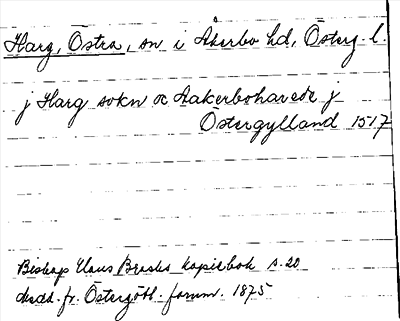 Harg, Östra, sn i Åkerbo hd, Österg. l.
j Harg sokn oc Aakerboharede j
Östergylland 1517
Biskop Hans Brasks kopiebok s. 20
medd. fr. Östergötl. fornm. 1875